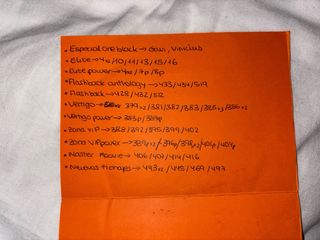 • Especial one block → Gavi, Vinicius
• Elite → 4x2/10/11/13/15/16
• Elite power → 4x2/7p/8p
• Flashback anthology → 433/434/519
• Flashback → 428/432/512
• Vertigo → 379x2/381/382/383/385x3/386x2
• Vertigo power → 383p/387p
• Zona VIP → 388/392/395/399/402
• Zona VIP power → /396p/398x2/406p/404p
• Master Rookie → 406/407/414/416
• Nuevos fichajes → 443x2/445/469/497